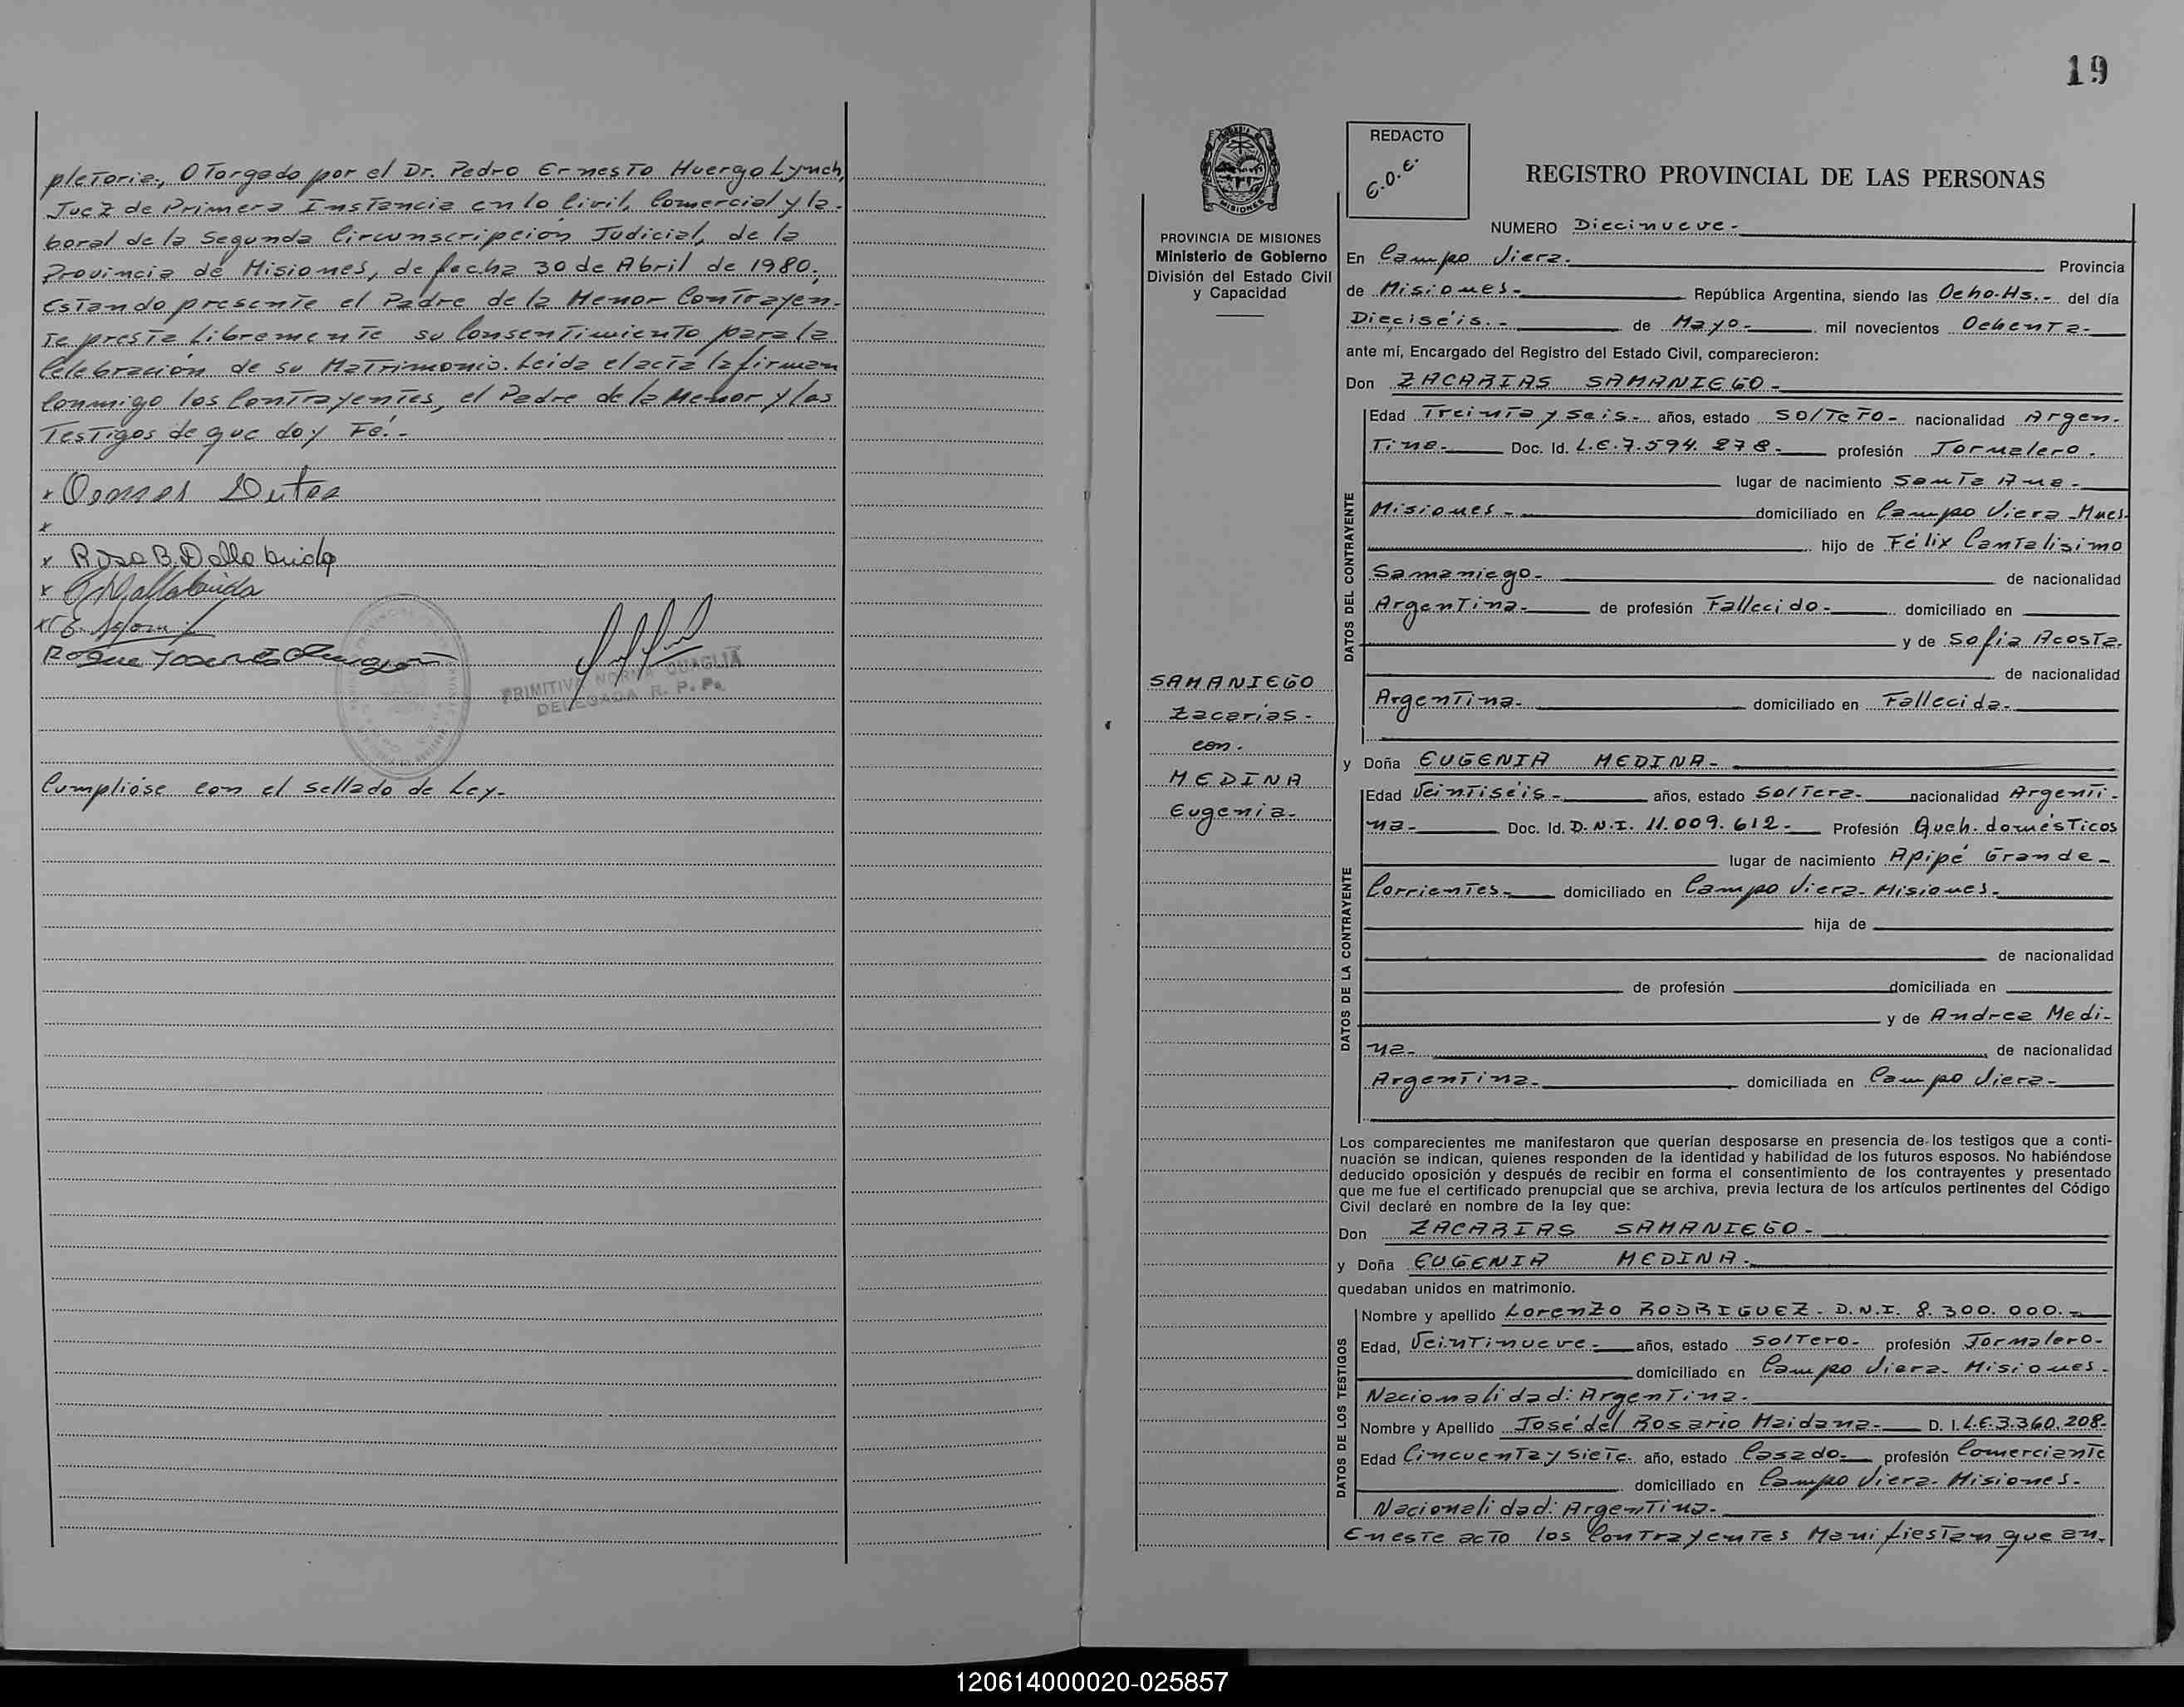 pletoria, Otorgado por el Dr. Pedro Ernesto Huergo Lynch,
Juez de Primera Instancia en lo Civil, Comercial y la-
boral de la Segunda Circunscripción Judicial, de la
Provincia de Misiones, de fecha 30 de Abril de 1980;
Estando presente el Padre de la Menor Contrayen-
te presta Libremente su Consentimiento para la
Celebración de su Matrimonio. Leida el acta la firman
Conmigo los Contrayentes, el Padre de la Menor y los
Testigos de que doy Fé.-
x
x
x Rosa B. Dallabrida
x Dallabrida
x
Roque
PRIMITIVA NORMA QUAGLIA
DELEGADA R. P. P.
Cumplióse con el sellado de Ley.-
19
REDACTO
G.O.E.
MISIONES
PROVINCIA DE MISIONES
Ministerio de Gobierno
División del Estado Civil
y Capacidad
SAMANIEGO
Zacarías.-
con.
MEDINA
Eugenia.-
REGISTRO PROVINCIAL DE LAS PERSONAS
NUMERO Diecinueve.-
En Campo Viera.- Provincia
de Misiones.- República Argentina, siendo las Ocho.Hs.- del día
Dieciséis.- de Mayo.- mil novecientos Ochenta.-
ante mí, Encargado del Registro del Estado Civil, comparecieron:
Don ZACARIAS SAMANIEGO.-
DATOS DEL CONTRAYENTE
Edad Treinta y seis.- años, estado soltero.- nacionalidad Argen-
tina.- Doc. Id. L.E.7.594.278.- profesión Jornalero.
lugar de nacimiento Santa Ana.-
Misiones.- domiciliado en Campo Viera-Mnes-
hijo de Félix Cantalisimo
Samaniego.- de nacionalidad
Argentina.- de profesión Fallecido.- domiciliado en
y de Sofía Acosta.
de nacionalidad
Argentina.- domiciliado en Fallecida.-
y Doña EUGENIA MEDINA.-
DATOS DE LA CONTRAYENTE
Edad Veintiséis.- años, estado soltera.- nacionalidad Argenti-
na.- Doc. Id. D.N.I. 11.009.612.- Profesión Queh. domésticos
lugar de nacimiento Apipé Grande-
Corrientes.- domiciliado en Campo Viera-Misiones.-
hija de
de nacionalidad
de profesión domiciliada en
y de Andrea Medi-
na.- de nacionalidad
Argentina.- domiciliada en Campo Viera-
Los comparecientes me manifestaron que querían desposarse en presencia de los testigos que a conti-
nuación se indican, quienes responden de la identidad y habilidad de los futuros esposos. No habiéndose
deducido oposición y después de recibir en forma el consentimiento de los contrayentes y presentado
que me fue el certificado prenupcial que se archiva, previa lectura de los artículos pertinentes del Código
Civil declaré en nombre de la ley que:
Don ZACARIAS SAMANIEGO.-
y Doña EUGENIA MEDINA.-
quedaban unidos en matrimonio.
DATOS DE LOS TESTIGOS
Nombre y apellido Lorenzo RODRIGUEZ - D.N.I. 8.300.000.-
Edad, Veintinueve.- años, estado soltero- profesión Jornalero-
domiciliado en Campo Viera- Misiones-
Nacionalidad: Argentina.-
Nombre y Apellido José del Rosario Maidana.- D. I. L.E.3.360.208.
Edad Cincuenta y siete. año, estado Casado.- profesión Comerciante
domiciliado en Campo Viera- Misiones-
Nacionalidad: Argentina.-
En este acto los Contrayentes Manifiestan que an-
120614000020-025857